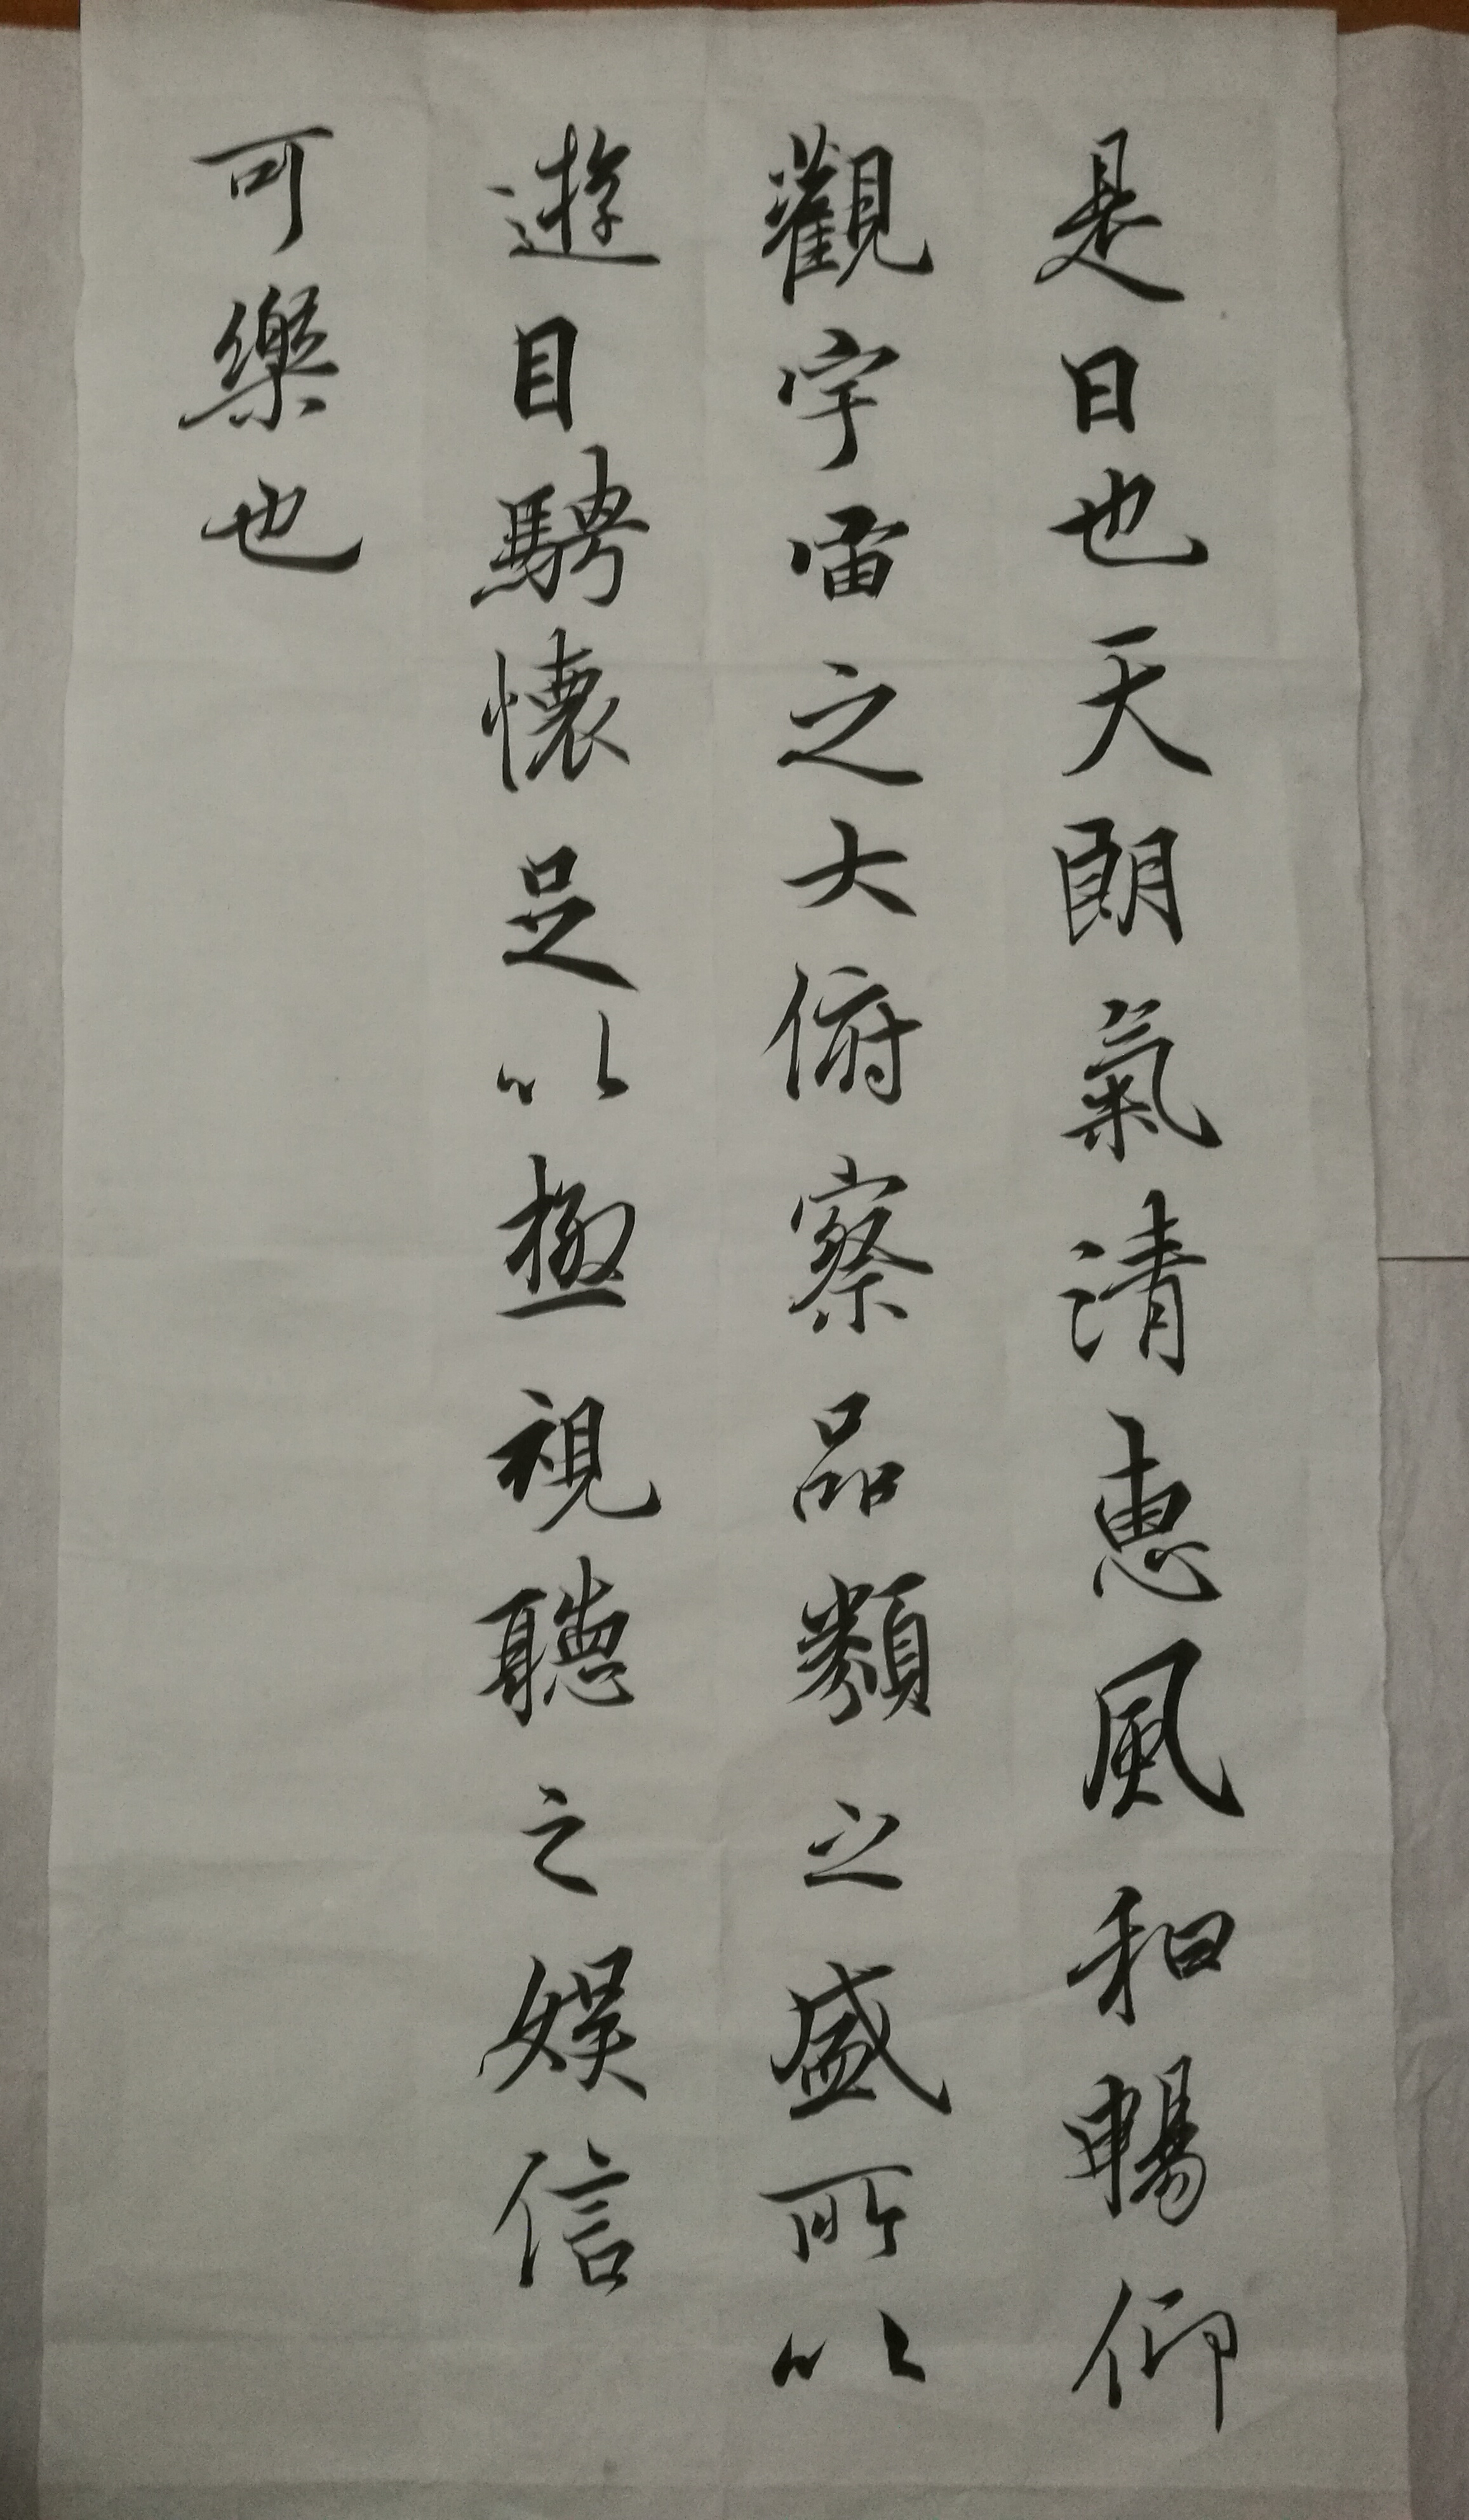 是日也天朗氣清惠風和暢仰
觀宇宙之大俯察品類之盛所以
遊目騁懷足以極視聽之娛信
可樂也